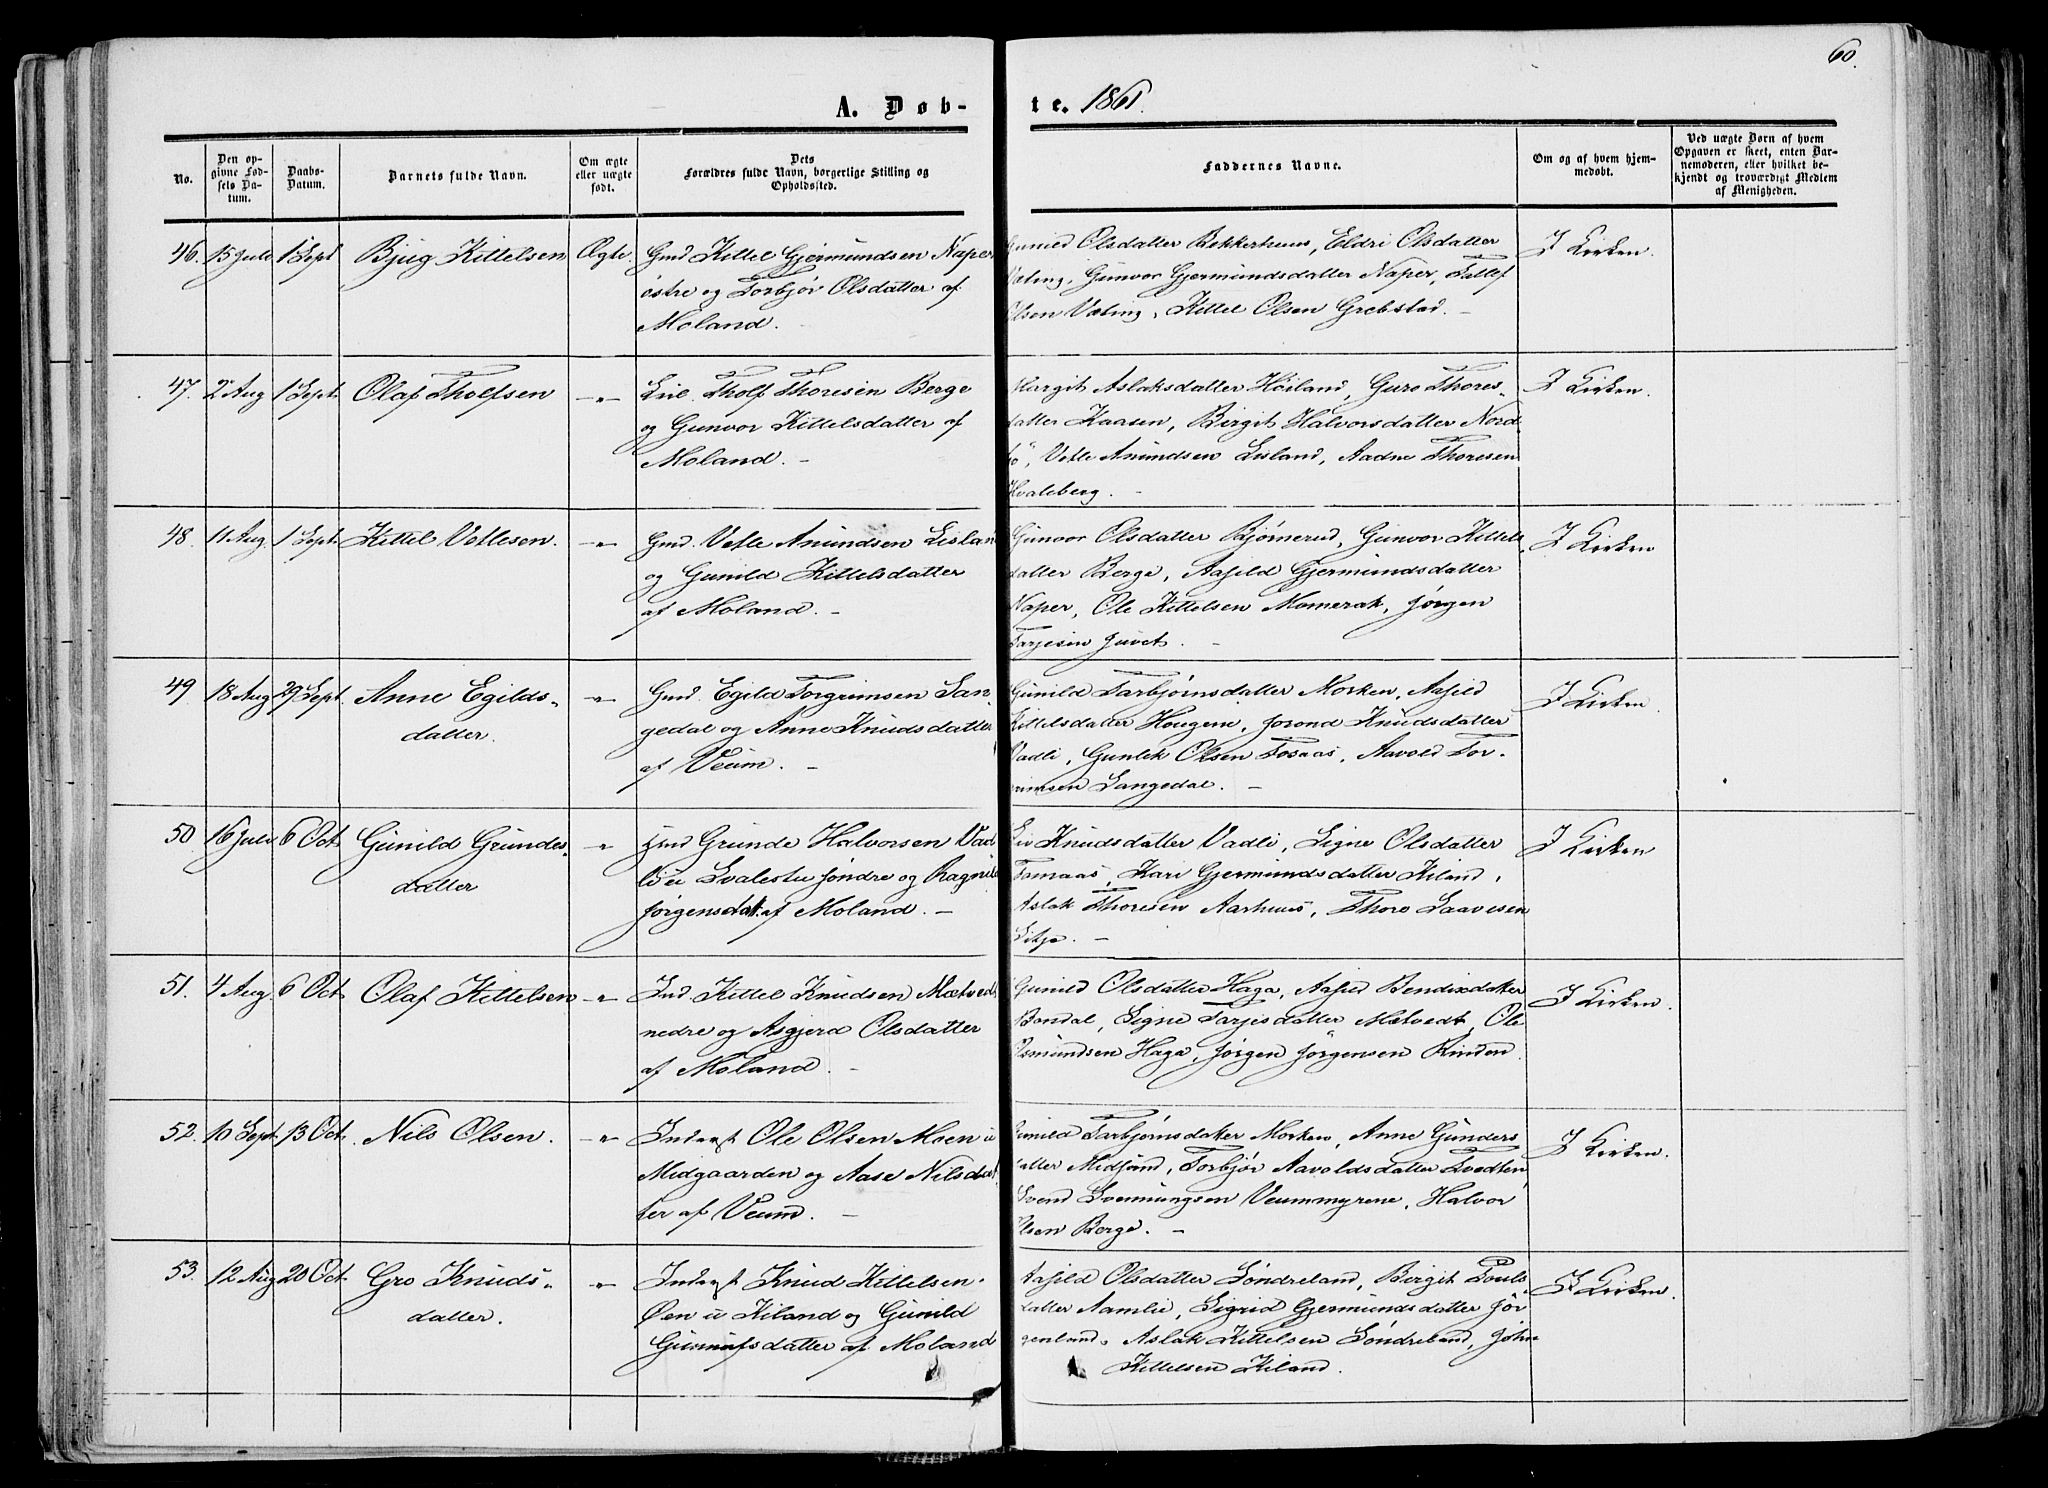 60.
A. Døbte. 1861.
No.
Den opgivne Fødsels Datum.
Daabs-Datum.
Barnets fulde Navn.
Om ægte eller uægte født.
Dets Forældres fulde Navn, borgerlige Stilling og Opholdssted.
Faddernes Navne.
Om og af hvem hjemmedøbt.
Ved uægte Børn af hvem Opgaven er skeet, enten Barnemoderen, eller hvilket bekjendt og troværdigt Medlem af Menigheden.
46. 15 Juli 1 Sept Bjug Kittelsen Ægte. Gmd Kittel Gjermundsen Naper
østre og Torbjør Olsdatter af
Moland. -
Gunild Olsdatter Bekkerhuus, Eldri Olsdatter
Væting, Gunvor Gjermundsdatter Naper, Tallef
Olsen Væting, Kittel Olsen Grebstad. -
I Kirken.
47. 2 Aug 1 Sept. Olaf Tholfsen -"- Tholf Thoresen Berge
og Gunvor Kittelsdatter af
Moland. -
Margit Aslaksdatter Höiland, Guro Thores-
datter Kaasen, Birgit Halvorsdatter Nord-
bö, Vetle Anundsen Lisland, Aadne Thoresen
Hvaleberg. -
I Kirken.
48. 11 Aug. 1 Sept. Kittel Vetlesen. -"- Gmd. Vetle Anundsen Lisland
og Gunild Kittelsdatter
af Moland. -
Gunvor Olsdatter Bjørnerud, Gunvor Kittels-
datter Berge, Aasild Gjermundsdatter
Naper, Ole Kittelsen Momerak, Jørgen
Tarjesen Juvet. -
I Kirken
49 18 Aug 29 Sept. Anne Egilds-
datter. -"- Gmd. Egild Torgrimsen Lan-
gedal og Anne Knudsdatter
af Veum. -
Gunild Tarbjørnsdatter Morken, Aasild
Kittelsdatter Hougene, Jorond Knudsdatter
Vadli, Gunlek Olsen Tosaas, Aavold Tor-
grimsen Langedal. -
I Kirken.
50 16 Juli 6 Oct Gunild Grundes-
datter -"- Hmd Grunde Halvorsen Vad-
li ei Svalestu søndre og Ragnild
Jørgensdatt. af Moland. -
Liv Knudsdatter Vadli, Signe Olsdatter
Tomaas, Kari Gjermundsdatter Kiland,
Aslak Thoresen Aarhuus, Thore Saavesen
Sitje. -
I Kirken
51. 4 Aug. 6 Oct Olaf Kittelsen -"- Ind. Kittel Knudsen Mætvedt
nedre og Asgjerd Olsdatter
af Moland. -
Gunild Olsdatter Haga, Aasild Bendixdatter
Bondal, Signe Tarjesdatter Mætvedt, Ole
Osmundsen Haga, Jørgen Jörgensen Rinden.
I Kirken.
52. 10 Sept. 13 Oct. Nils Olsen. -"- Inderst Ole Olsen Moen u
Midgaarden og Aase Nilsdat-
ter af Veum. -
Gunild Tarbjørnsdatter Morken, Anne Gunders
datter Midsund, Torbjør Aavoldsdatter Tvedten,
Svend Svenungsen Veummyrene, Halvor
Olsen Berge. -
I Kirken.
53. 12 Aug 20 Oct. Gro Knuds-
datter. -"- Inderst Knud Kittelsen
Øen u Kiland og Gunild
Gunnufsdatter af Moland
Aasild Olsdatter Søndreland, Birgit Pouls
datter Aamlie, Sigrid Gjermundsdatter Jör-
genland, Aslak Kittelsen Søndreland, John
Kittelsen Kiland.
I Kirken.